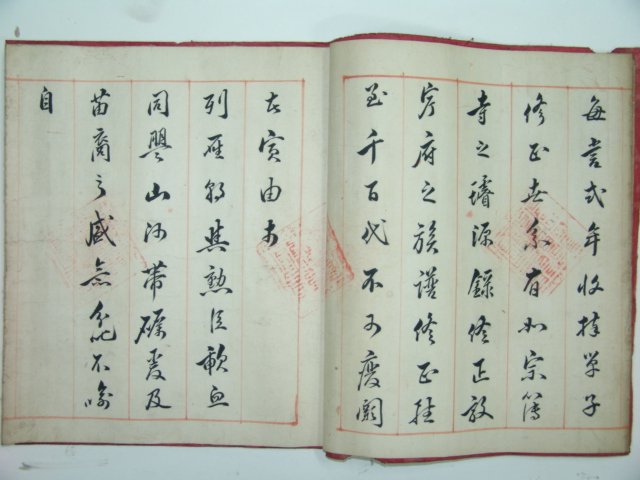 每當式年收捧單子
修正世系有如宗簿
寺之璿源錄修正敦
寧府之族譜修正
至千百代不可廢闕
實由
列聖朝其勳臣歃血
同盟山河帶礪爰及
苗裔之盛意不
自